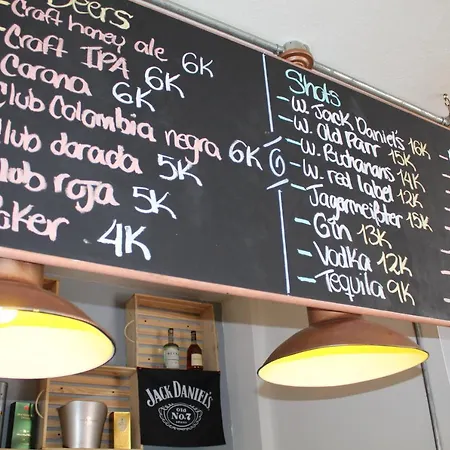 Beers
Craft honey ale 6K
Craft IPA 6K
Carona 6K
Club Colombia negra 6K
Club dorada 5K
Club roja 5K
Poker 4K
Shots
- W. Jack Daniel's 16K
- W. Old Parr 15K
- W. Buchanans 14K
- W. red label 12K
- Jagermeißter 15K
- Gin 13K
- Vodka 12K
- Tequila 9K
JACK DANIEL'S
OLD
No. 7
BRAND